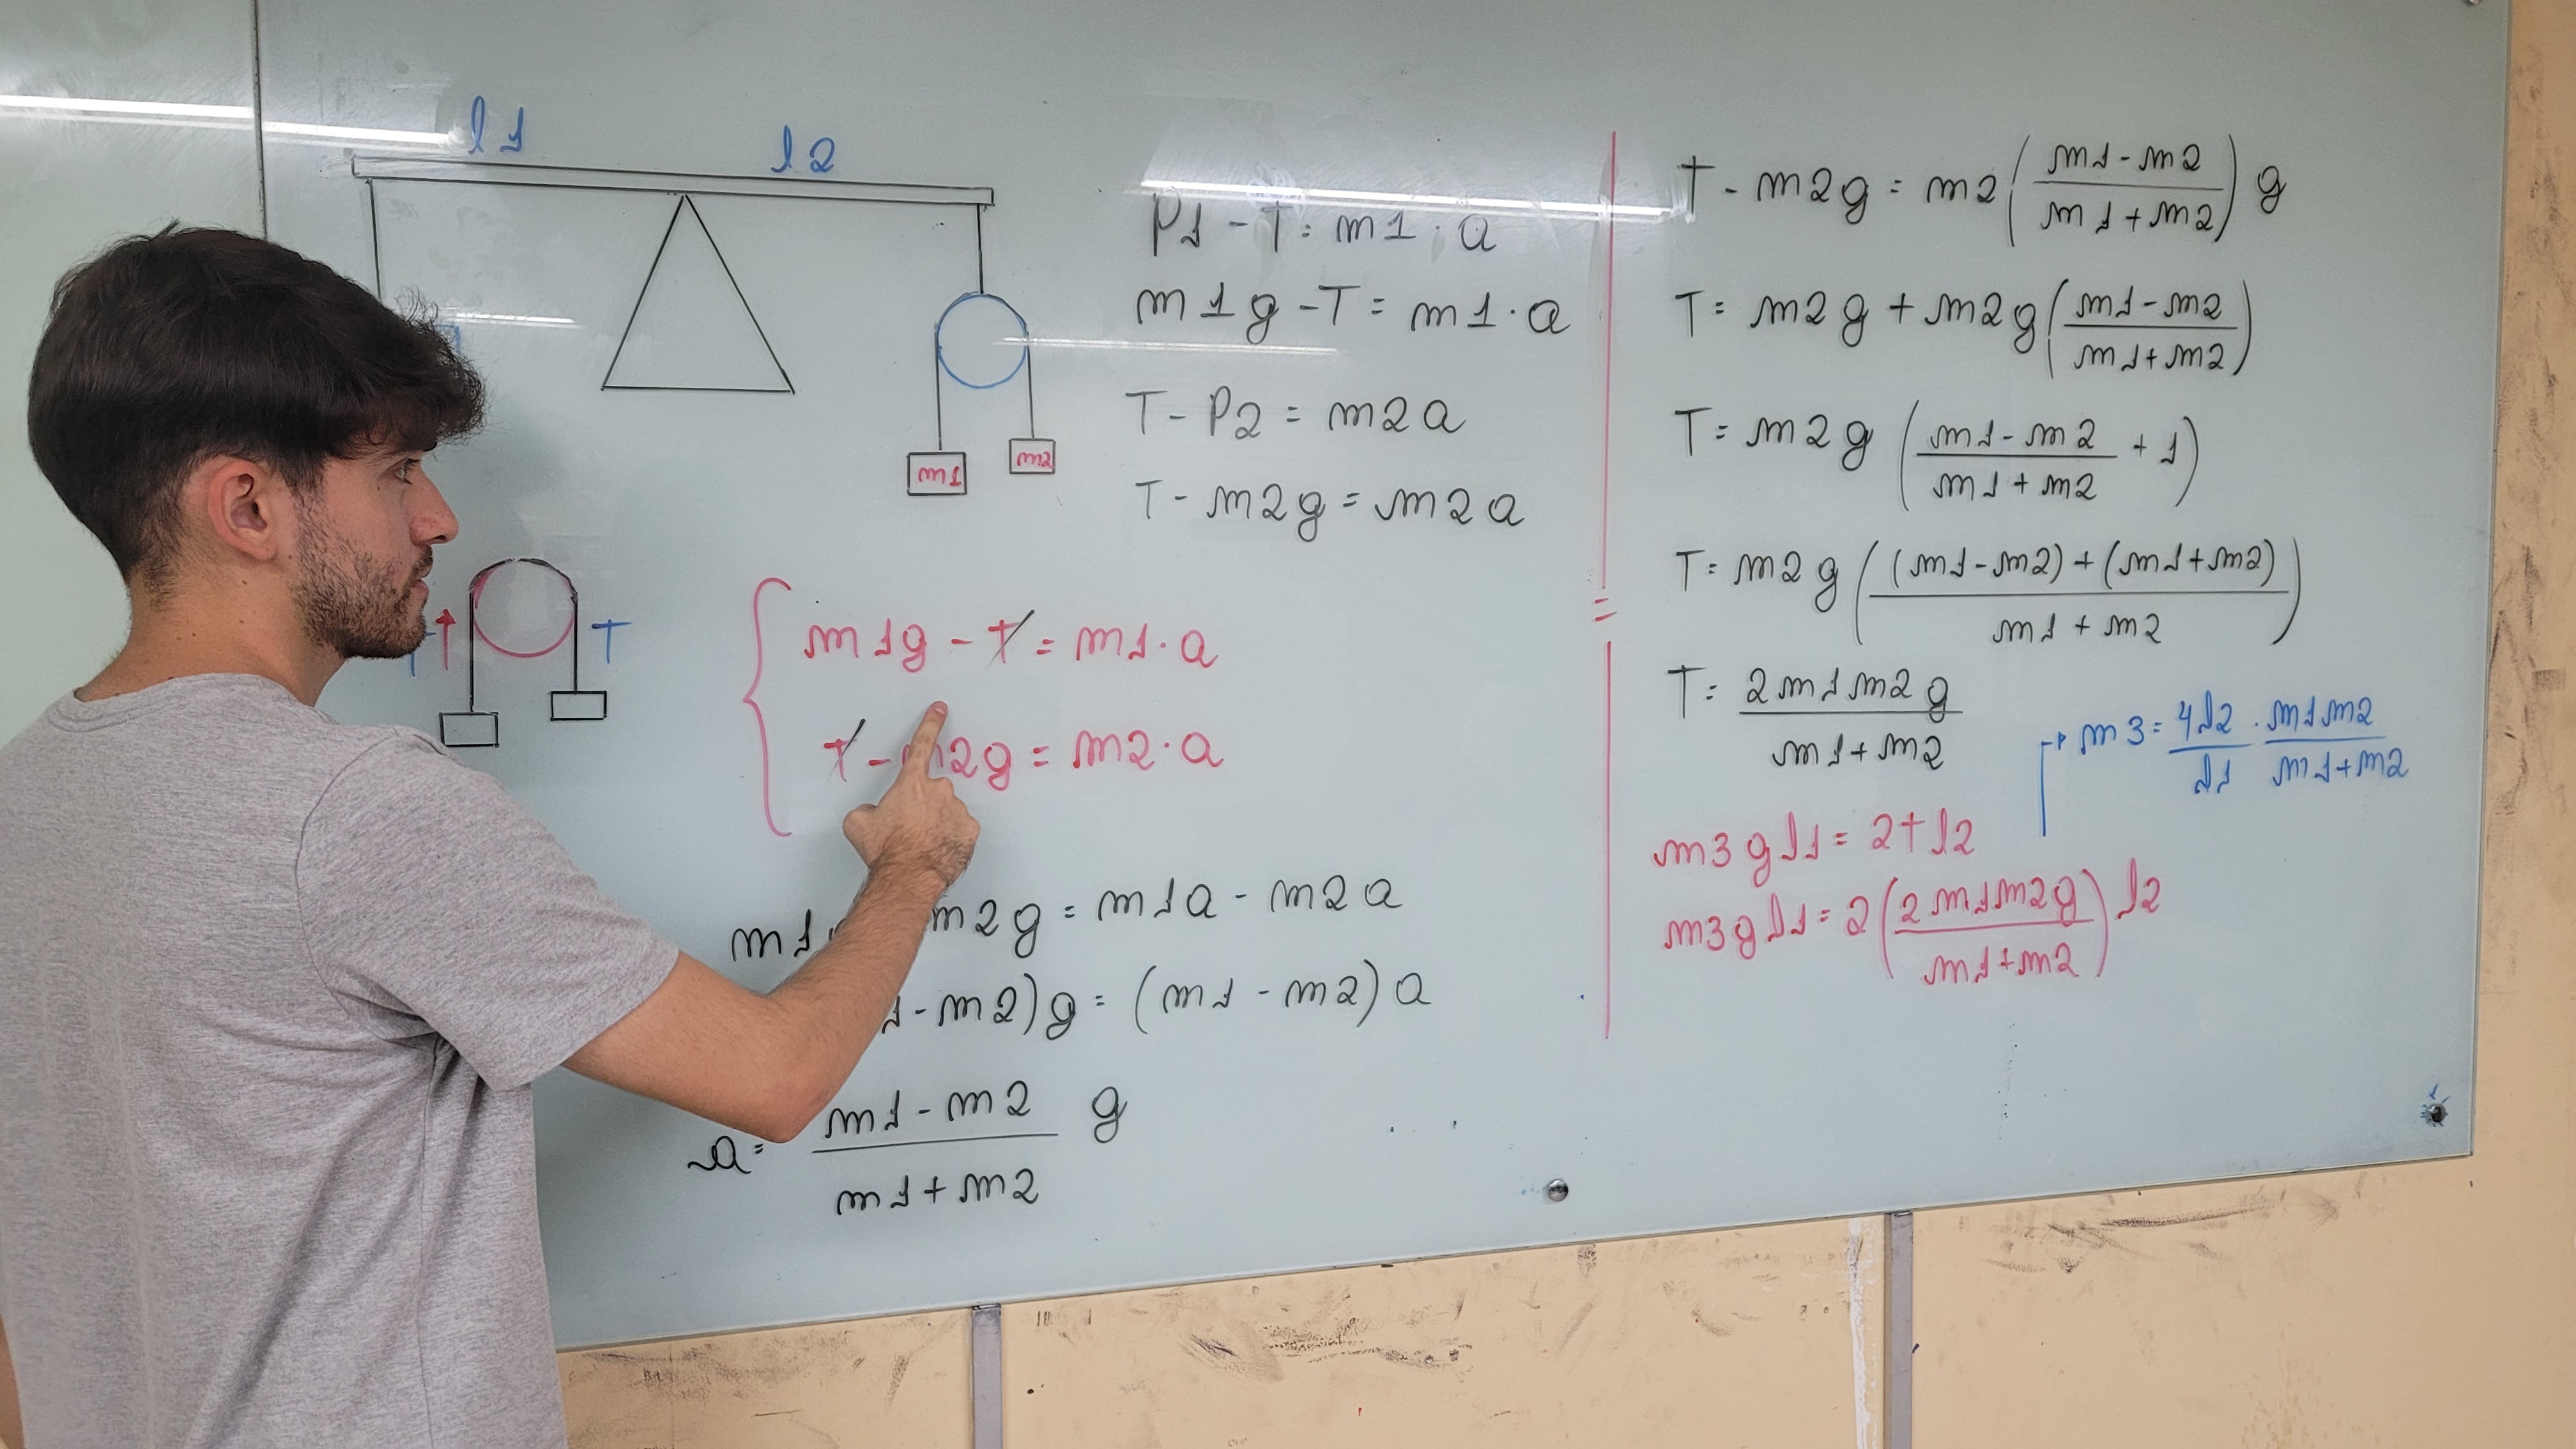 l1
l2
m1
m2
T
P1 - T = m1 . a
m1g - T = m1 . a
T - P2 = m2a
T - m2g = m2a
m1g - T = m1 . a
T - m2g = m2 . a
m1 m2g = m1a - m2a
- m2)g = (m1 - m2)a
a = (m1 - m2)/(m1 + m2) g
=
T - m2g = m2((m1 - m2)/(m1 + m2))g
T = m2g + m2g((m1 - m2)/(m1 + m2))
T = m2g((m1 - m2)/(m1 + m2) + 1)
T = m2g(((m1 - m2) + (m1 + m2))/(m1 + m2))
T = (2m1m2g)/(m1 + m2)
m3 = 4l2/l1 . (m1m2)/(m1 + m2)
m3gl1 = 2Tl2
m3gl1 = 2((2m1m2g)/(m1 + m2))l2